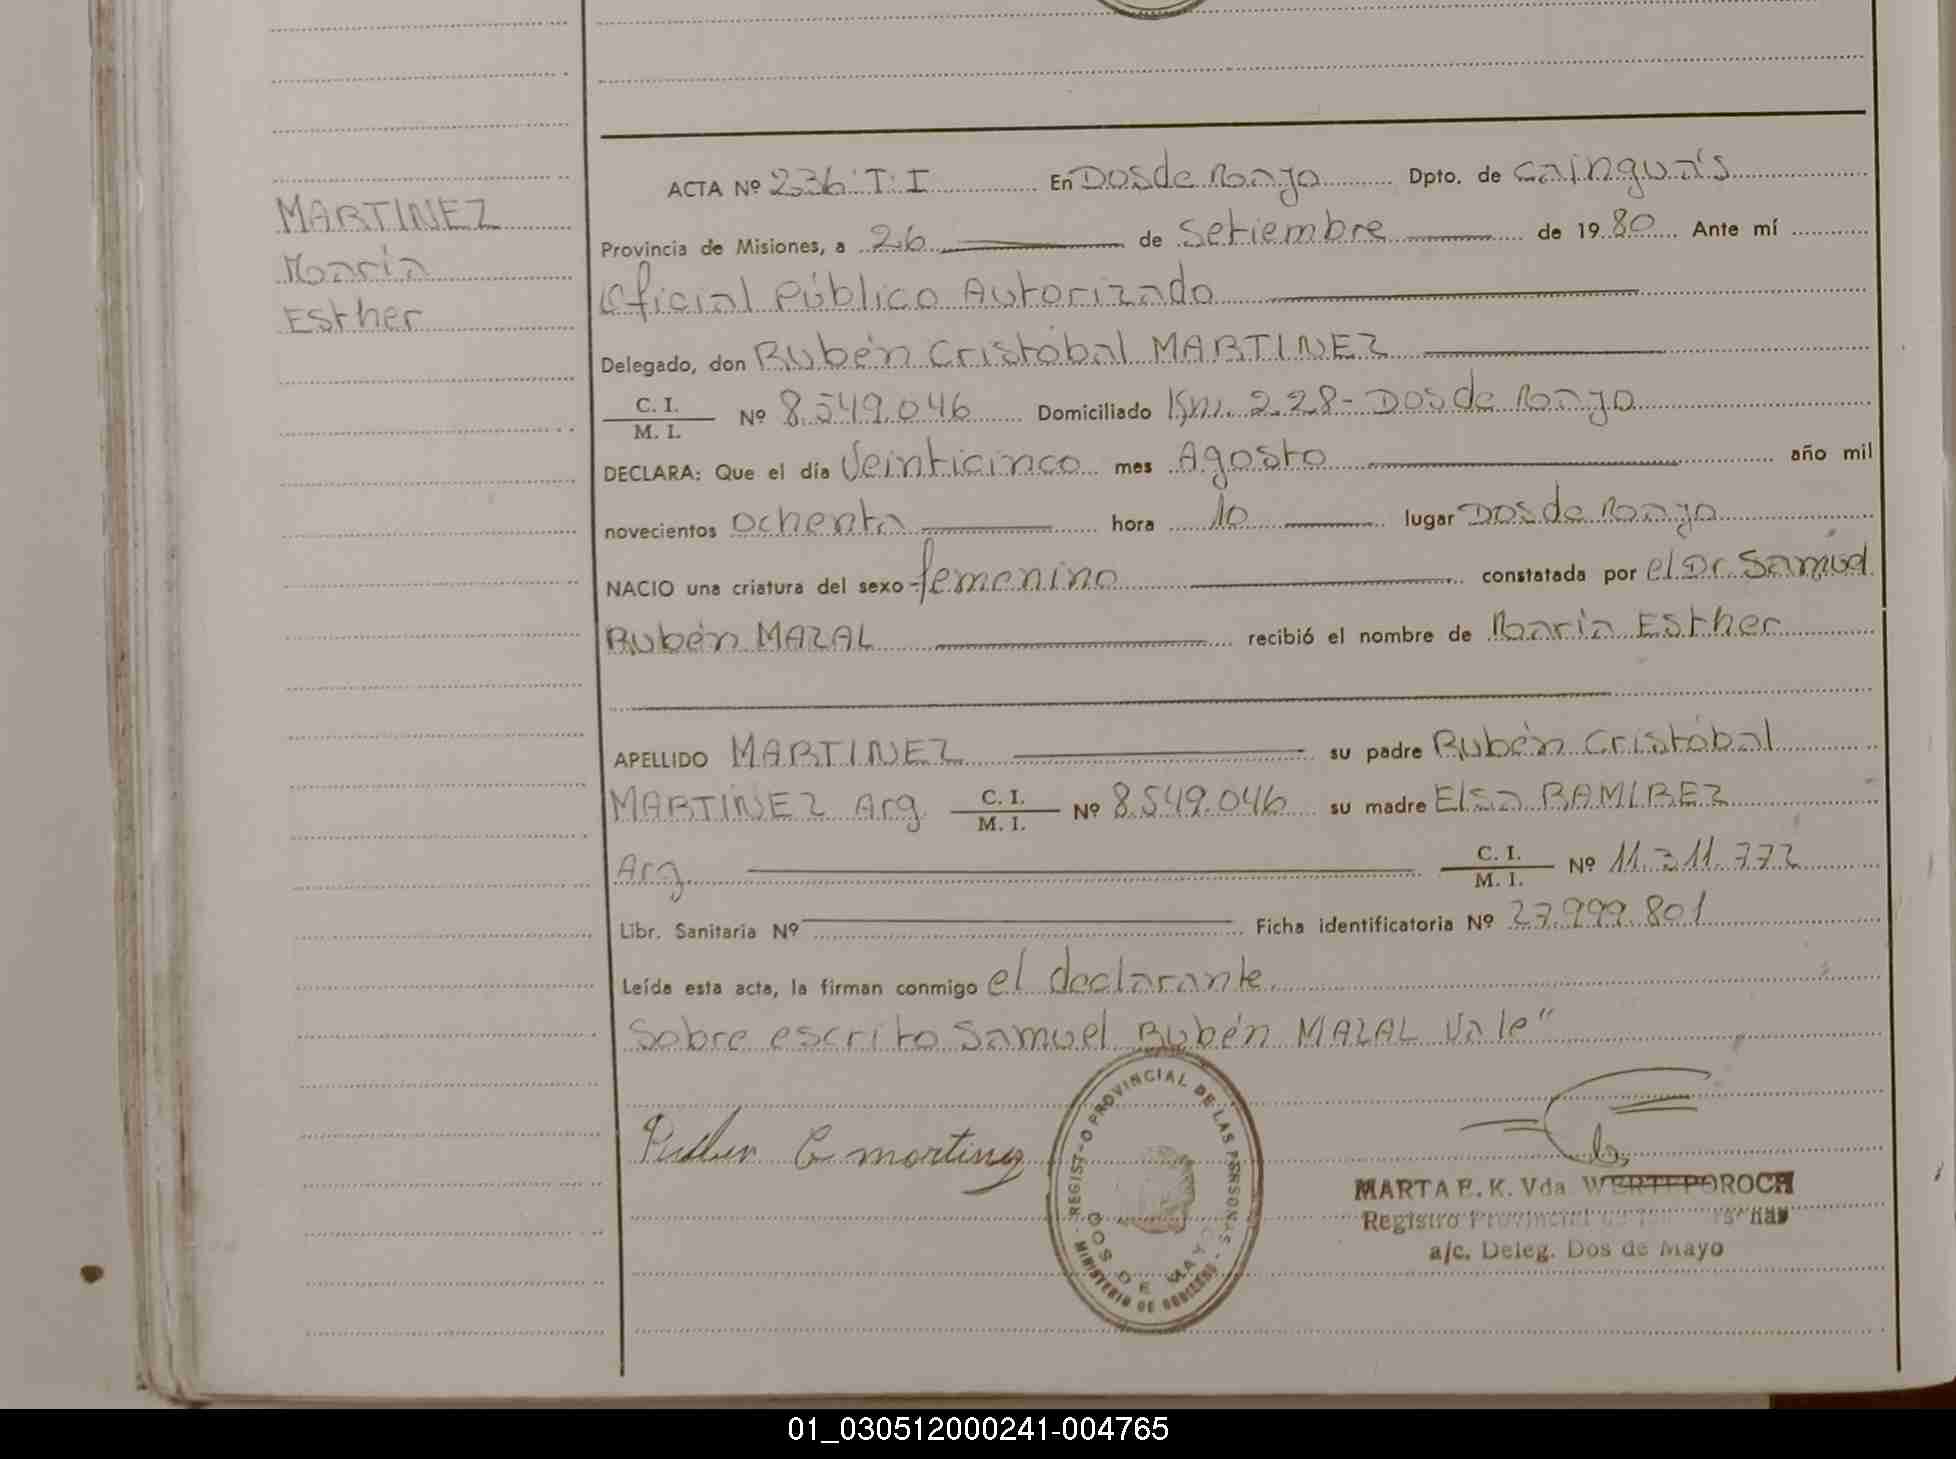 MARTINEZ
María
Esther
ACTA Nº 236 T. I En Dos de Mayo Dpto. de Cainguás
Provincia de Misiones, a 26 de Setiembre de 1980 Ante mí
Oficial Público Autorizado
Delegado, don Rubén Cristóbal MARTINEZ
C. I. / M. I. Nº 8.549.046 Domiciliado Km. 228 - Dos de Mayo
DECLARA: Que el día Veinticinco mes Agosto año mil
novecientos ochenta hora 10 lugar Dos de Mayo
NACIO una criatura del sexo femenino constatada por el Dr Samuel
Rubén MAZAL recibió el nombre de María Esther
APELLIDO MARTINEZ su padre Rubén Cristóbal
MARTINEZ Arg. C. I. / M. I. Nº 8.549.046 su madre Elsa RAMIREZ
Arg. C. I. / M. I. Nº 11.311.772
Libr. Sanitaria Nº Ficha identificatoria Nº 27.999.801
Leída esta acta, la firman conmigo el declarante.
Sobre escrito Samuel Rubén MAZAL Vale"
Ruben C martinez
REGISTRO PROVINCIAL DE LAS PERSONAS - MINISTERIO DE GOBIERNO
DOS DE MAYO
MARTA E. K. Vda
Registro Provincial de las Personas
a/c. Deleg. Dos de Mayo
01_030512000241-004765